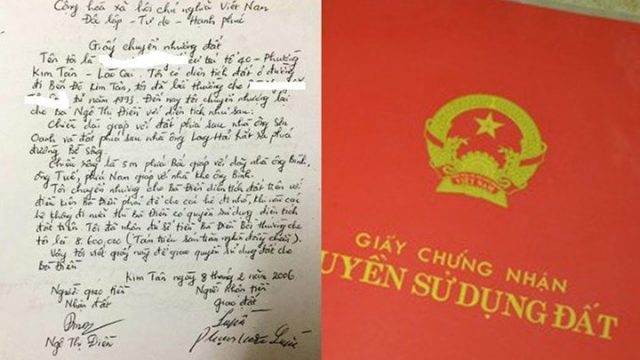 Cộng hoà xã hội chủ nghĩa Việt Nam
Độc lập - Tự do - Hạnh phúc
Giấy chuyển nhường đất
Tên tôi là cư trú tổ 40 - Phường
Kim Tân - Lào Cai. Tôi có diện tích đất ở đường
đi Bến Đá Kim Tân, tôi đã bồi thường cho
từ năm 1993. Đến nay tôi chuyển nhường lại
cho bà Ngô Thị Điền với diện tích như sau.
Chiều dài giáp với đất phía sau nhà ông
Oanh và đất phía sau nhà ông Long Hà hắt xa phía
đường Bờ sông.
Chiều rộng là 5m phía Bắc giáp với dãy nhà ông Bình,
ông Tuế, phía Nam giáp với nhà kho ông Bình.
Tôi chuyển nhường cho Bà Điền diện tích đất trên với
điều kiện Bà Điền phải để cho cái hệ đi nhờ, khi nào cái
hệ không đi nước thì Bà Điền có quyền sử dụng diện tích
đất trên. Tôi đã nhận đủ số tiền Bà Điền Bồi thường cho
tôi là 8.600,000 (Tám triệu sáu trăm nghìn đồng chẵn).
Vậy tôi viết giấy này để giao quyền sử dụng đất cho
Bà Điền
Kim Tân ngày 8 tháng 2 năm 2006
Người giao tiền Người nhận tiền
Nhận đất giao đất
Ngô Thị Điền
VIỆT NAM
GIẤY CHỨNG NHẬN
UYỀN SỬ DỤNG ĐẤT